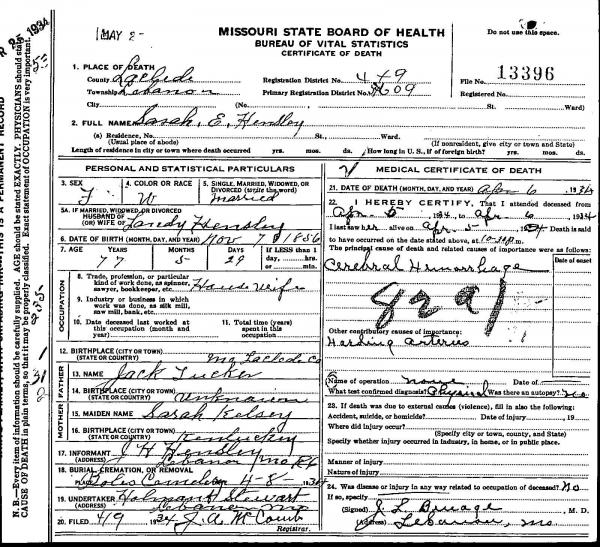 MAY 2-
MISSOURI STATE BOARD OF HEALTH
BUREAU OF VITAL STATISTICS
CERTIFICATE OF DEATH
Do not use this space.
1. PLACE OF DEATH
County Laclede
Registration District No. 449
File No. 13396
Township Lebanon
Primary Registration District No.
Registered No.
City (No. St. Ward)
2. FULL NAME Sarah, E, Hensley
(a) Residence, No. St., Ward.
(Usual place of abode) (If nonresident, give city or town and State)
Length of residence in city or town where death occurred yrs. mos. ds. How long in U. S., if of foreign birth? yrs. mos. ds.
PERSONAL AND STATISTICAL PARTICULARS
3. SEX F
4. COLOR OR RACE W
5. SINGLE, MARRIED, WIDOWED, OR DIVORCED (write the word) married
5A. IF MARRIED, WIDOWED, OR DIVORCED
HUSBAND OF
(OR) WIFE OF Hensley
6. DATE OF BIRTH (MONTH, DAY, AND YEAR) Nov 7 1856
7. AGE YEARS MONTHS DAYS If LESS than 1 day, hrs. or min.
77 5 29
OCCUPATION
8. Trade, profession, or particular kind of work done, as spinner, sawyer, bookkeeper, etc. House wife
9. Industry or business in which work was done, as silk mill, saw mill, bank, etc.
10. Date deceased last worked at this occupation (month and year)
11. Total time (years) spent in this occupation
12. BIRTHPLACE (CITY OR TOWN)
(STATE OR COUNTRY) Mo Laclede Co
FATHER
13. NAME Jack Tucker
14. BIRTHPLACE (CITY OR TOWN)
(STATE OR COUNTRY) Unknown
MOTHER
15. MAIDEN NAME Sarah Kelsey
16. BIRTHPLACE (CITY OR TOWN)
(STATE OR COUNTRY) Kentucky
17. INFORMANT J H Hensley
(ADDRESS) Lebanon Mo
18. BURIAL, CREMATION, OR REMOVAL
4-8-1934
19. UNDERTAKER Holman & Stewart
(ADDRESS) Lebanon Mo
20. FILED 4/9 1934 J. A. McComb
Registrar.
MEDICAL CERTIFICATE OF DEATH
21. DATE OF DEATH (MONTH, DAY, AND YEAR) Apr 6 1934
22. I HEREBY CERTIFY, That I attended deceased from
Apr 5 1934, to Apr 6 1934
I last saw her alive on Apr 5 1934 Death is said
to have occurred on the date stated above, at
The principal cause of death and related causes of importance were as follows: Date of onset
Cerebral Hemorrhage
82a
Other contributory causes of importance:
Harding arteries
Name of operation none Date of
What test confirmed diagnosis? Physical Was there an autopsy? no
23. If death was due to external causes (violence), fill in also the following:
Accident, suicide, or homicide? Date of injury , 19
Where did injury occur?
(Specify city or town, county, and State)
Specify whether injury occurred in industry, in home, or in public place.
Manner of injury
Nature of injury
24. Was disease or injury in any way related to occupation of deceased? no
If so, specify
(Signed) M. D.
(Address) Lebanon, Mo
N. B.—Every item of information should be carefully supplied. AGE should be stated EXACTLY. PHYSICIANS should state
CAUSE OF DEATH in plain terms, so that it may be properly classified. Exact statement of OCCUPATION is very important.